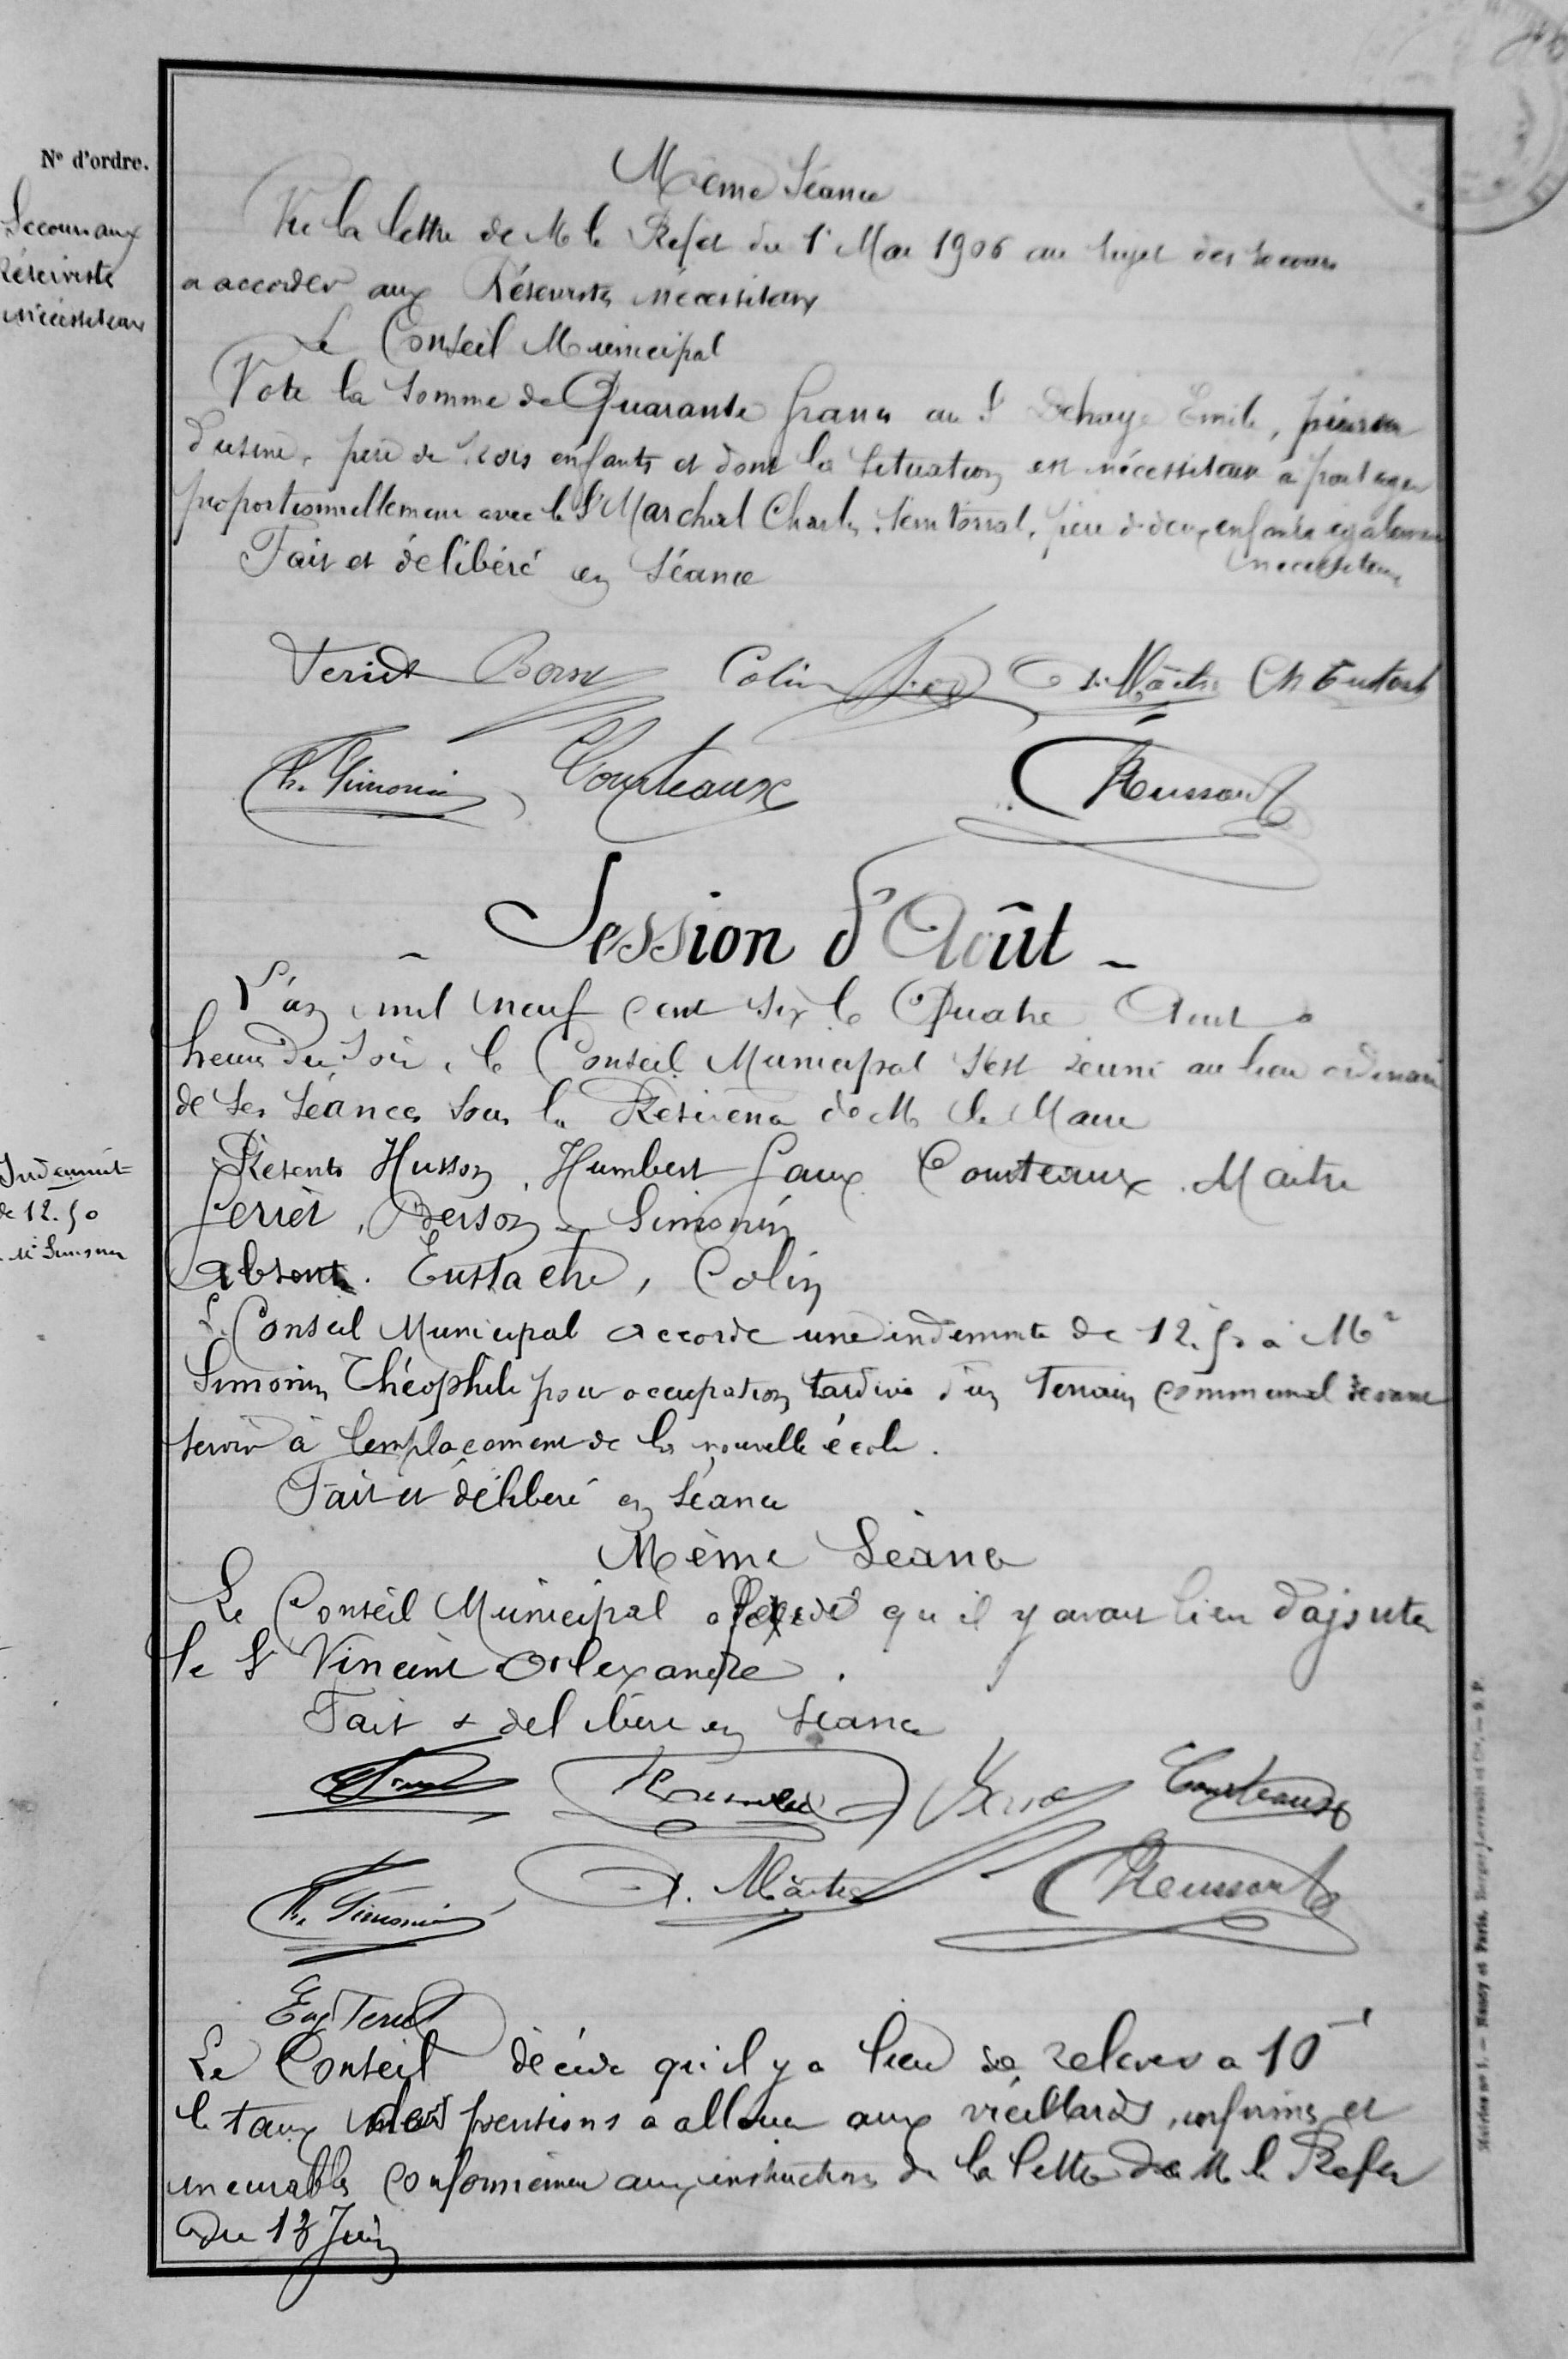 N° d'ordre.
Secours aux
Réserviste
nécessiteux
Même Séance
Vu la lettre de M le Préfet du 1r Mai 1906 au sujet des secours
a accorder aux Réservistes nécessiteux
Le Conseil Municipal
Vote la somme de Quarante francs au Sr Dehaye Emile,
d'usine, père de trois enfants et dont la situation est nécessiteux à partager
proportionnellement avec le Sr Marchal Charles, territorial, père de deux enfants également
nécessiteux
Fait et délibéré en Séance
Feriet Colin D. Maître Ch Eustach
Th. Simonin Courteaux Husson
- Session d'Août -
L'an mil neuf cent six le Quatre Aout a
heures du Soir, le Conseil Municipal s'est réuni au lieu ordinaire
de ses séances sous la Présidence de M le Maire
Indemnité
de 12.50
Mr Simonin
Présents Husson, Humbert Caux Courteaux. Maitre
Ferriet, Berson, Simonin
Absents. Eustache, Colin
Le Conseil Municipal accorde une indemnité de 12.50 à Mr
Simonin Théophile pour occupation tardive d'un terrain communal devant
servir à l'emplacement de la nouvelle école.
Fait et délibéré en Séance
Même Séance
Le Conseil Municipal a décidé qu'il y avait lieu d'ajouter
le Sr Vincent Alexandre.
Fait & délibéré en Séance
Courteaux
Th. Simonin D. Maître Husson
Eug Feriet
Le Conseil décide qu'il y a lieu de relever a 10 f
le taux des pensions à allouer aux vieillards, infirmes et
incurables conformément aux instructions de la lettre de M le Préfet
du 13 Juin
Nancy et Paris. Berger-Levrault et Cie. — 9 P.